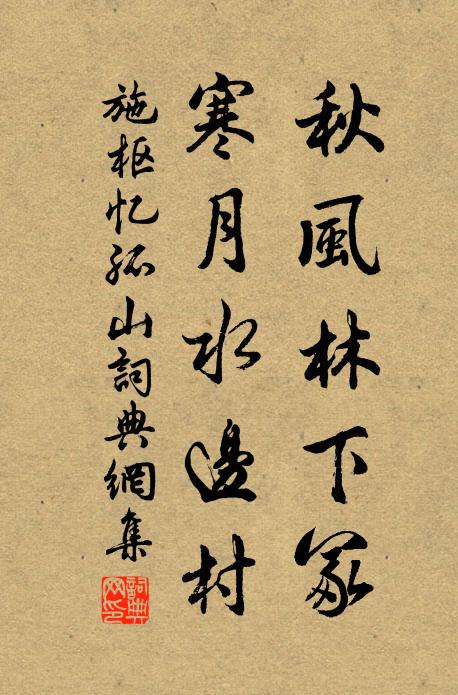 秋風林下冢
寒月水邊村
施枢忆孤山詞典網集
詞典网印